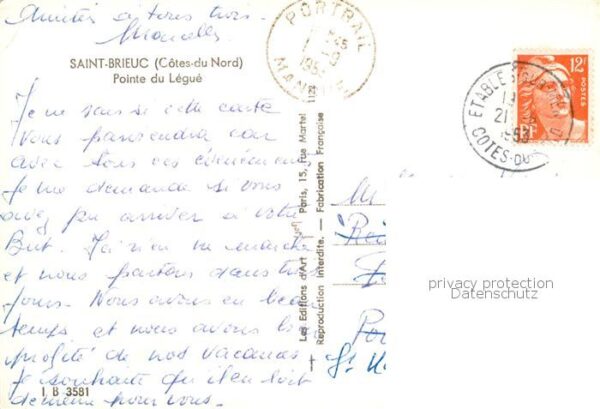 Amitiés à tous trois.
Marcelle
SAINT-BRIEUC (Côtes-du Nord)
Pointe du Légué
Je ne sais si cette carte
vous parviendra car
avec tous ces événements
je me demande si vous
avez pu arriver à votre
But. J'ai rien
et nous partons dans trois
jours. Nous avons eu beau
temps et nous avons bien
profité de nos vacances
je souhaite qu'il en soit
de même pour vous.
I B 3581
Les Editions d'Art Paris, 15, rue Martel
Reproduction Interdite. — Fabrication Française
PORTBAIL
MANCHE
12F
POSTES
RF
ETABLES
21
1953
COTES-DU-
M
privacy protection
Datenschutz